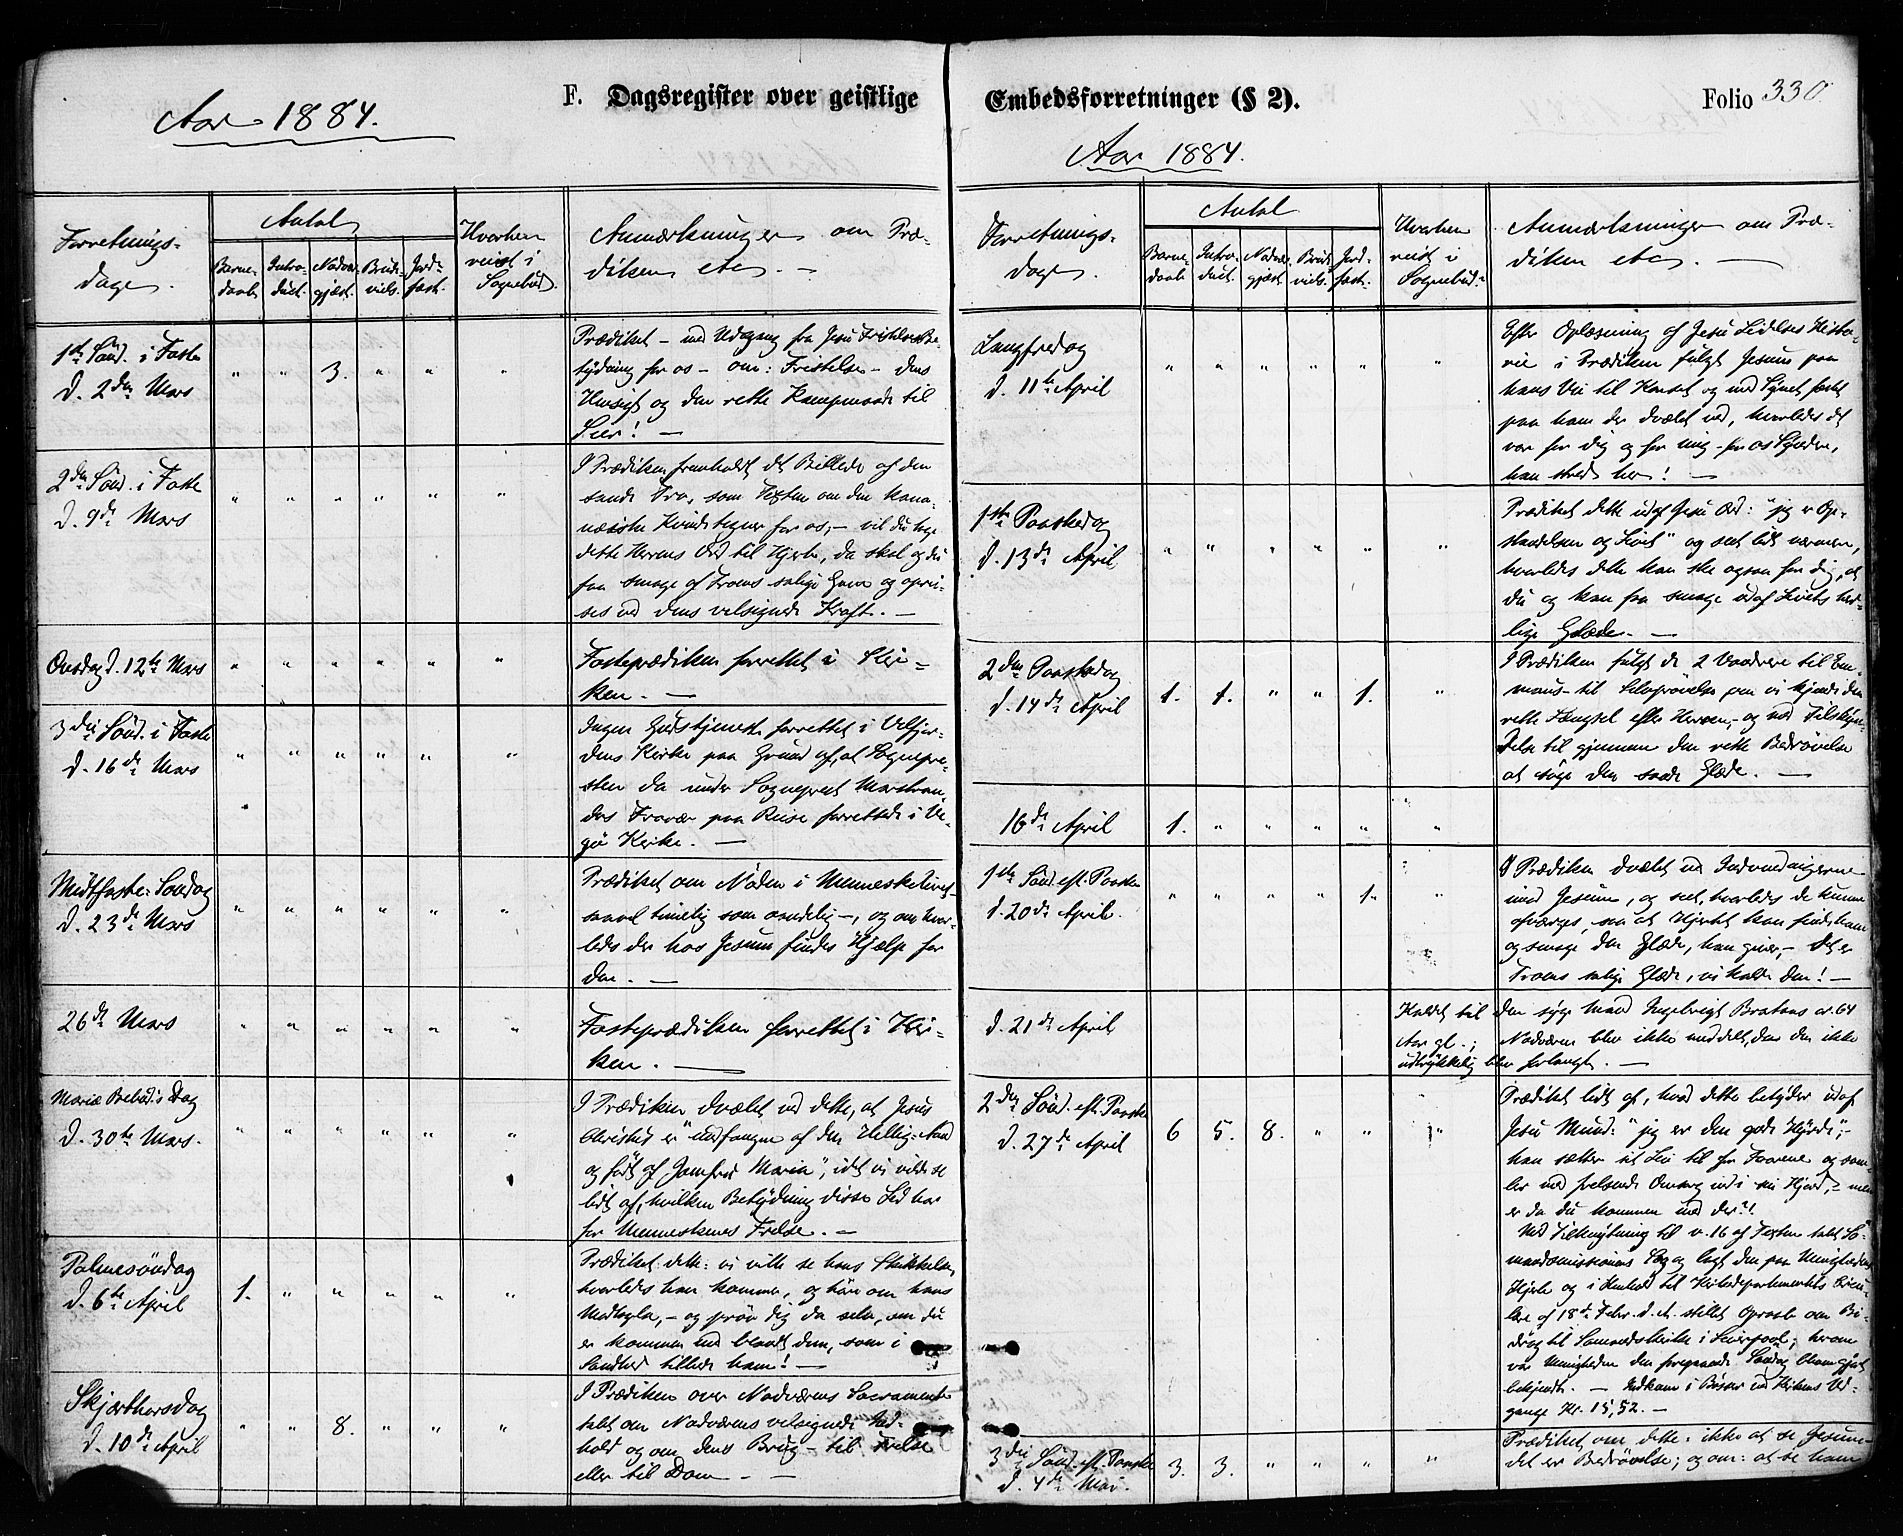 F. Dagsregister over geistlige
Aar 1884.
Forretnings-
dage.
Antal
Barne-
daab.
Intro-
duct.
Nadver-
gjæst.
Brude-
viels.
Jord-
fæst.
Hvorhen
reist i
Sognebud.
Anmærkninger om Præ-
diken etc. —
1ste Sönd. i Faste
d. 2den Mars
" " 3. " " "
Prædiket – med Udgang fra Jesu Fristelses Be-
tydning for os – om: Fristelse – dens
Hensigt og den rette Kampmaade til
Seier! —
2den Sönd. i Faste
d. 9de Mars
" " " " " "
I Prædiken fremholdt det Billede af den
sande Tro, som Texten om den kana-
næiske Kvinde tegner for os, – vil du tage
dette Herrens Ord til Hjerte, da skal og du
faa smage af Troens salige Gave og opri-
ses ved dens velsignede Kraft. —
Onsdag d. 12te Mars
" " " " " "
Fasteprædiken forrettet i Kir-
ken. —
3die Sönd. i Faste
d. 16de Mars
" " " " " "
Ingen Gudstjeneste forrettet i Velfjor-
dens Kirke paa Grund af, at Sognepre-
sten da under Sogneprest Marstran-
ders Fravær paa Reise forrettede i Ve-
gö Kirke. —
Midtfaste-Söndag
d. 23de Mars
" " " " " "
Prædiket om Nöden i Menneskelivet –
saavel timelig som aandelig –, og om hvor-
ledes der hos Jesum findes Hjælp for
den. —
26de Mars
" " " " " "
Fasteprædiken forrettet i Kir-
ken. —
Mariæ Bebud.s Dag
d. 30te Mars.
" " " " " "
I Prædiken dvælet ved dette, at Jesus
Christus er "undfangen af den Hellig-Aand
og födt af Jomfru Maria", idet vi vilde se
lidt af, hvilken Betydning disse Led har
for Menneskenes Frelse. —
Palmesöndag
d. 6te April
1. " " " " "
Prædiket dette: vi ville se hans Skikkelse,
hvorledes han kommer, og höre om hans
Modtagelse, – og pröv dig da selv, om du
er kommen ind blandt dem, som i
Sandhed tilbede ham! —
Skjærthorsdag
d. 10de April
" " 8. " " "
I Prædiken over Nadverens Sacrament
talt om Nadverens velsignede Ind-
hold og om dens Brug – til Frelse
eller til Dom. —
Embedsforretninger (§ 2).
Folio 330.
Aar 1884.
Forretnings-
dage.
Antal
Barne-
daab.
Intro-
duct.
Nadver-
gjæst.
Brude-
viels.
Jord-
fæst.
Hvorhen
reist i
Sognebud.
Anmærkninger om Præ-
diken etc. —
Langfredag
d. 11te April
" " " " " "
Efter Oplæsning af Jesu Lidelses Histo-
rie i Prædiken fulgt Jesum paa
hans Vei til Korset og med Synet fæstet
paa ham der dvælet ved, hvorledes det
var for dig og for mig – for os Syndere,
han stred her! —
1ste Paaskedag
d. 13de April
" " " " " "
Prædiket dette udaf Jesu Ord: "jeg er Op-
standelsen og Livet" og seet lidt nærmere,
hvorledes dette kan ske ogsaa for dig, at
du og kan faa smage udaf Livets herr-
lige Glæde. —
2den Paaskedag
d. 14de April
1. 1. " " 1. "
I Prædiken fulgt de 2 Vandrere til Em-
maus – til Selvprövelse om vi kjende den
rette Længsel efter Herren, – og ved Tilskyn-
delse til gjennem den rette Bedrövelse
at söge den sande Glæde. —
16de April
1. " " " " "
1ste Sönd. eft. Paaske
d. 20de April.
" " " " 1. "
I Prædiken dvælet ved Indvendingerne
mod Jesum, og seet, hvorledes de kunne
afværges, saa at Hjertet kan finde ham
og smage den Glæde, han giver, – Det er
Troens salige Glæde, vi kalde den! —
d. 21de April
Kaldet til den syge Mand Ingebrigt Brataas cr. 64
Aar gl.; Nadveren blev ikke meddelt, da den ikke
udtrykkelig blev forlangt. —
2den Sönd. eft. Paaske
d. 27de April
6 5. 8. " " "
Prædiket lidt af, hvad dette betyder udaf
Jesu Mund: "jeg er den gode Hyrde", –
han sætter sit Liv til for Faarene og sam-
ler med frelsende Omsorg ind i sin Hjord, – men
er da du kommen ind der?!
Ved Tilknytning til v. 16 af Texten talt Sö-
mandsmissionens Sag og lagt den paa Menighedens
Hjerte og i Henhold til Kirkedepartementets Circu-
lære af 18de Febr. d. A. stillet Opraab om Bi-
drag til Sömandskirke i Liverpool; herom
var Menigheden den foregaaende Söndag bleven gjort
bekjendt. — Indkom i Bösser ved Kirkens Ud-
gange Kr. 15,52. —
3die Sönd. eft. Paaske
d. 4de Mai.
3. 3. " " " "
Prædiket om dette: ikke at se Jesum –
det er Bedrövelse; og om: at se ham